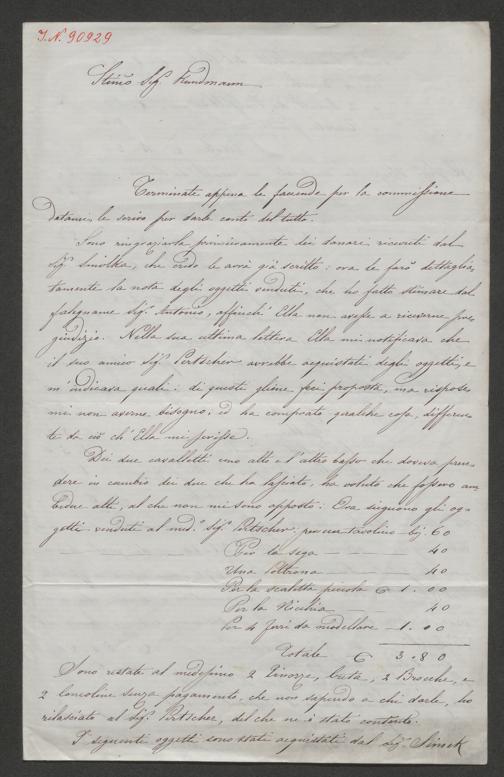 I.N. 90929
Stimo Sigr. Kundmann
Terminate appena le facende per la commissione
datami, le scrivo per darle conto del tutto.
Sono ringraziarla primieramente dei danari ricevuti dal
Sigr. Smolka, che credo le avrà già scritto: ora le farò dettaglia,
tamente la nota degli oggetti venduti, che ho fatto stimare dal
falegname Sigr. Antonio, affinchè Ella non avesse a riceverne pre
giudizio. Nella sua ultima lettera Ella mi notificava che
il suo amico Sigr. Pertscher avrebbe acquistati degli oggetti, e
m'indicava quali: di questi gliene feci proposta, ma rispose
mi non averne bisogno, ed ha comprate qualche cosa, differen
te da ciò ch'Ella mi scrisse.
Dei due cavalletti uno alto e l'altro basso che doveva pren
dere in cambio dei due che ha lasciato, ha voluto che fossero am
bedue alti, al che non mi sono opposto: Ora sieguono gli og
getti venduti al mdo. Sigr. Pertscher: per un tavolino 60
Per la sega — 40
Una Poltrona — 40
Per la scaletta piccola 1.00
Per la Nicchia — 40
Per 4 ferri da modellare — 1.00
Totale 3.80
Sono restate al medesimo 2 Tinozze, Creta, 2 Brocche, e
2 Concoline senza pagamento, che non sapendo a chi darle, ho
rilasciato al Sigr. Pertscher, del che ne è stato contento.
I seguenti oggetti sono stati acquistati dal Sigr. Simek